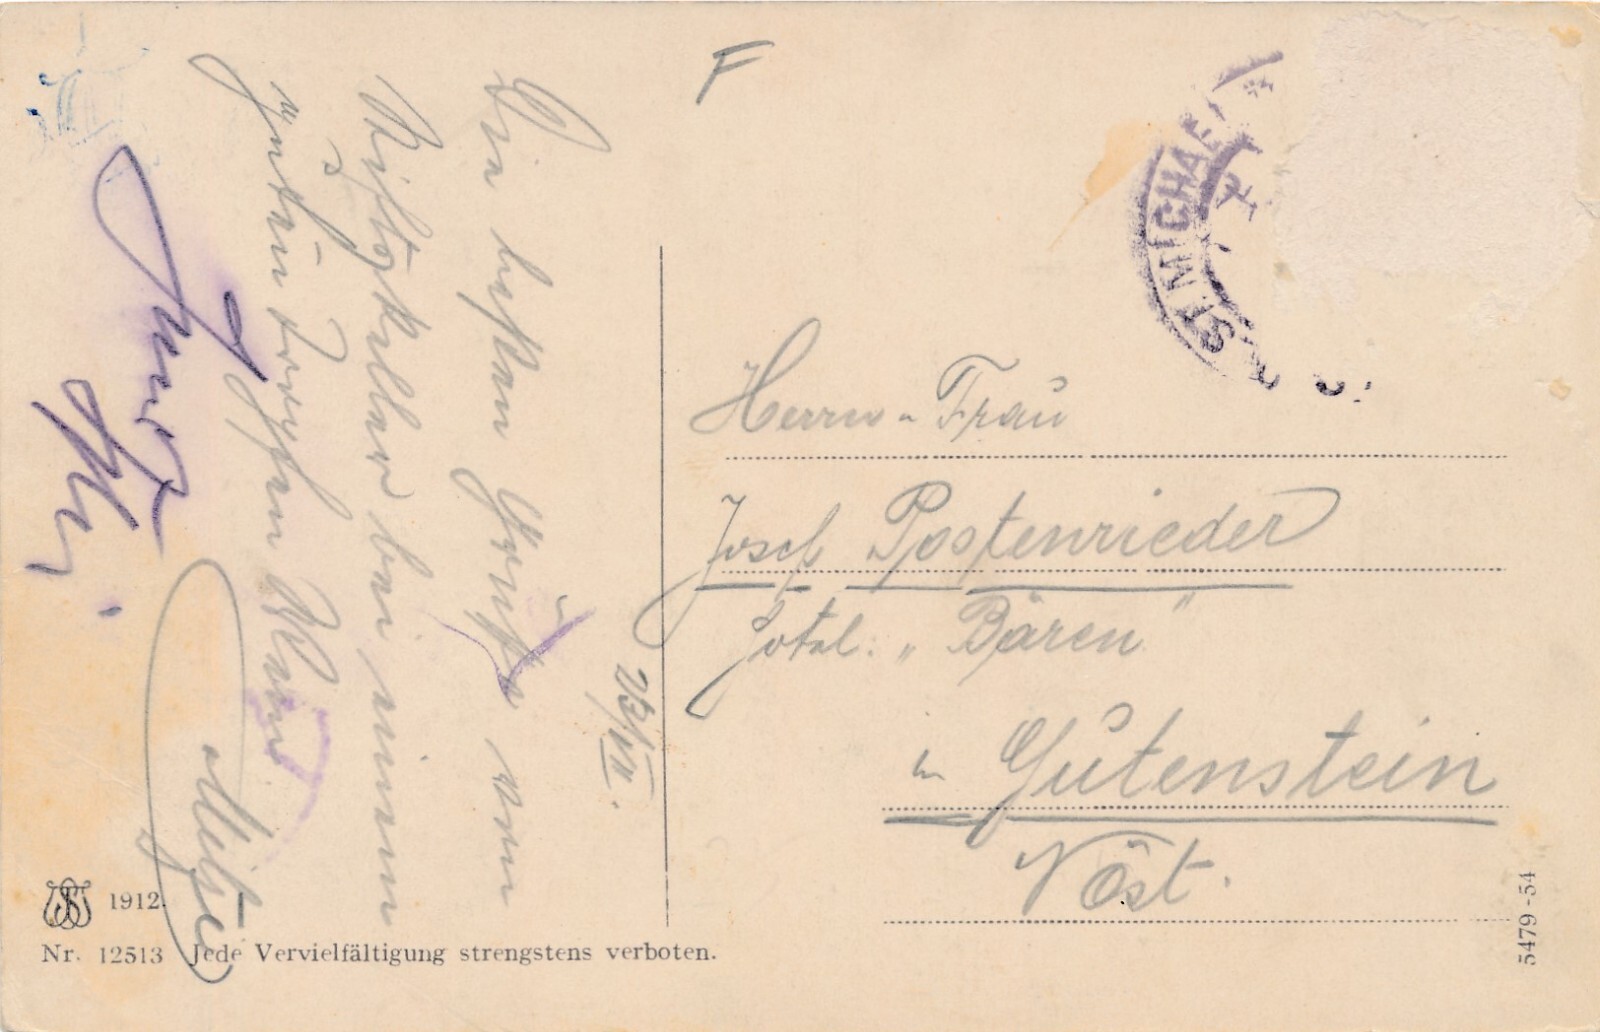 23/VII.
Die besten Grüße vom
Stiftskeller bei einem
guten Tropfen Wein
Mitzi
F
ST. MICHAEL
Herrn u Frau
Josef Postenrieder
Hotel: „Bären"
in Gutenstein
N Öst.
1912.
Nr. 12513 Jede Vervielfältigung strengstens verboten.
5479-54